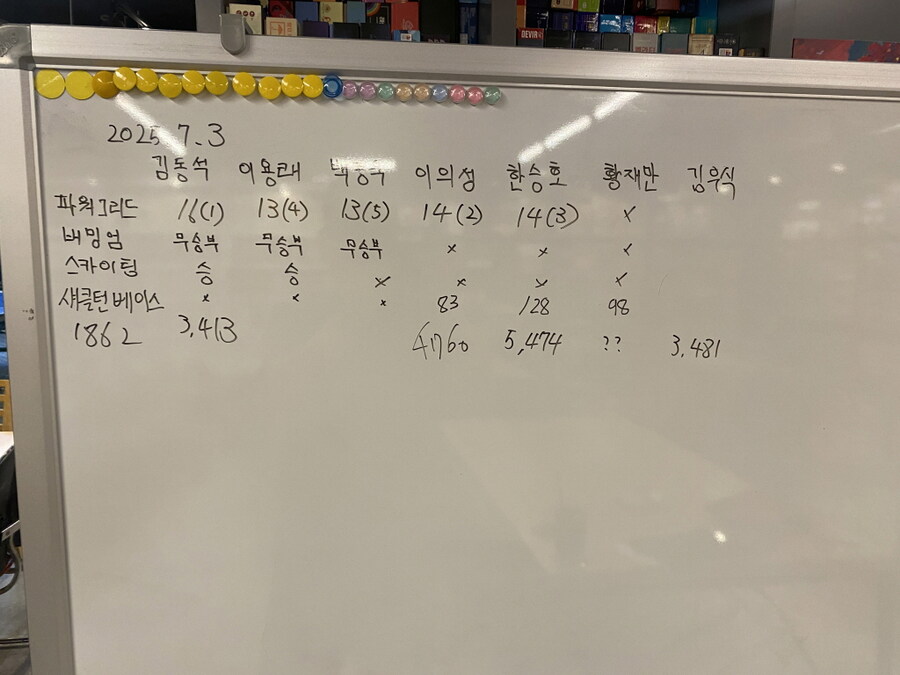 DEVIR
2025.7.3
김동석 이용래 이의성 한승호 황재만 김우식
파워그리드 16(1) 13(4) 13(5) 14(2) 14(3) x
배밍엄 무승부 무승부 무승부 x x x
스카이팀 승 승 x x x x
섀클턴베이스 x x x 83 128 98
1862 3,413 4,760 5,474 ?? 3,481